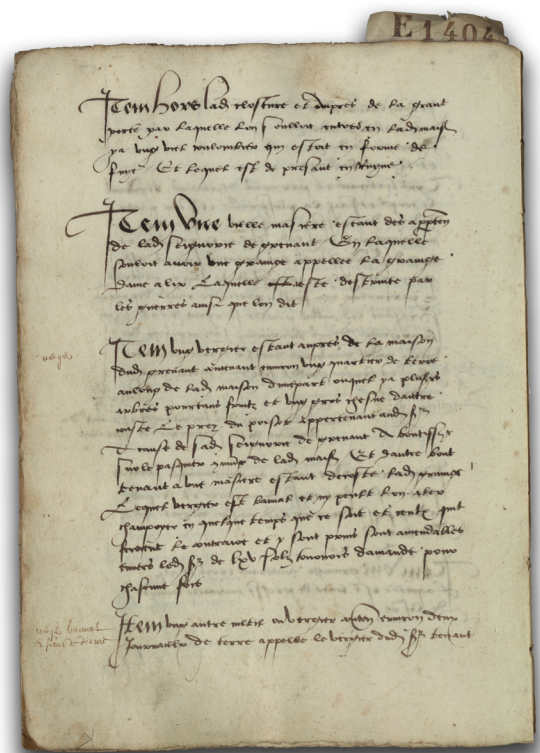 E 1404
Item hors lad closture et aupres de la grant
porte par laquelle lon souloit entrer en lad mais
ya ung viel coulombier qui estoit en forme de
fuye Et lequel est de present en ruyne
Item une vielle masiere estant des appten
de lad seignorie de grenant En laquelle
souloit avoir une grange appellee la grange
dame alix Laquelle a este destruite par
les guerres ainsi que lon dit
Item ung vergier estant aupres de la maison
dud grenant contenant environ ung quartier de terre
au long de lad maison dune part ouquel ya plusrs
arbres portans fruitz et ung gros chesne dautre
coste Le prez du appertenant aud sr
a cause de sad seignorie de grenant
sur le de lad mais Et dautre bout
tenant a une masiere estant decoste lad grange
Lequel vergier est banal et ny peult lon aler
champoyer en quelque temps que ce soit et ceulx qui
feroient le contraire et y sont prins sont amendables
envers led sr de lxv solz tournois damande pour
chascune fois
Item ung autre en vergier conten environ deux
journaulx de terre appelle le vergier dud sr tenant